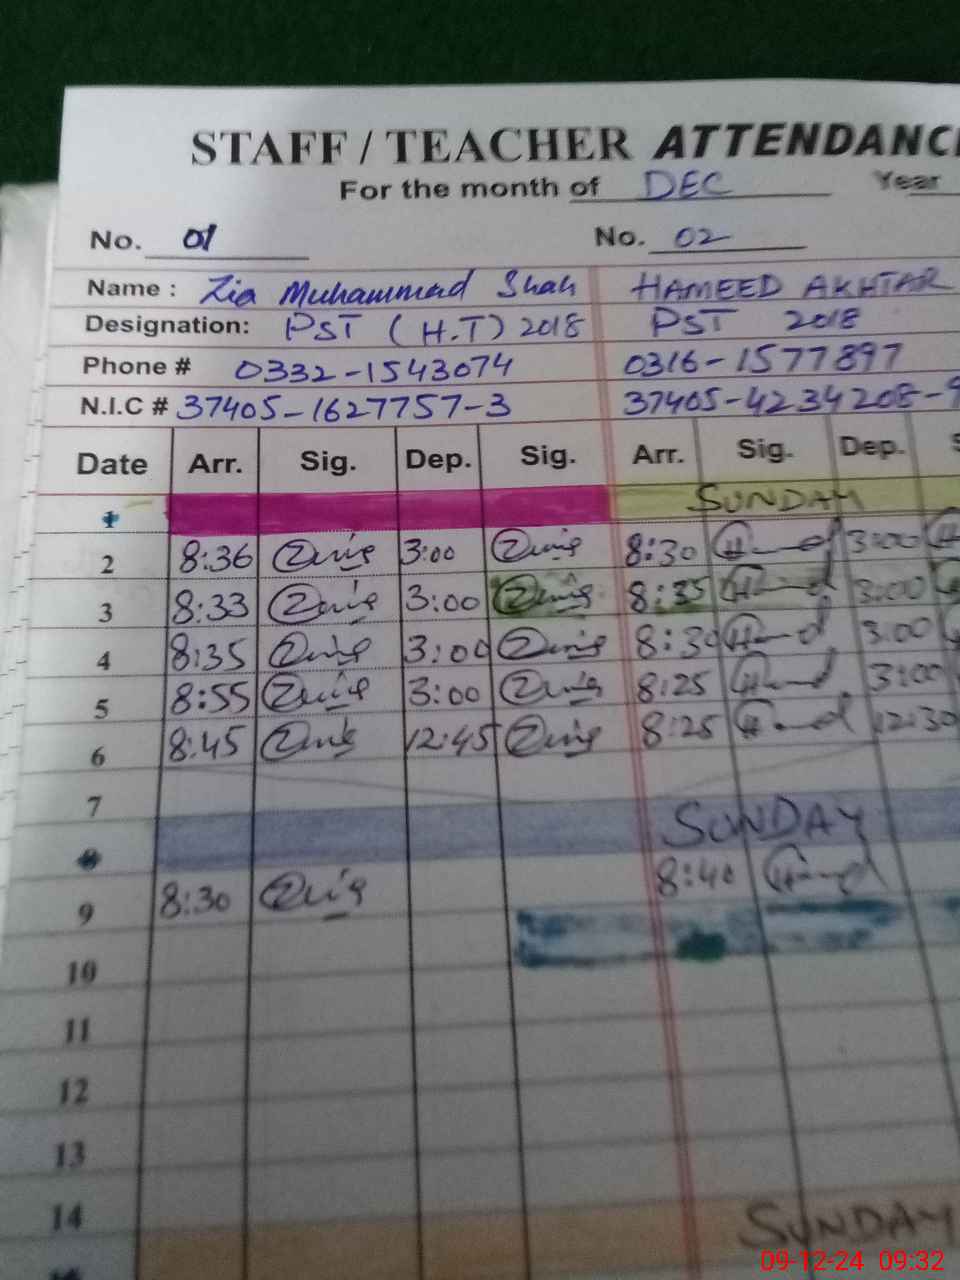 STAFF / TEACHER ATTENDANC
For the month of DEC Year
No. 01 No. 02
Name : Zia Muhammad Shah HAMEED AKHTAR
Designation: PST (H.T) 2018 PST 2018
Phone # 0332-1543074 0316-1577897
N.I.C # 37405-1627757-3 37405-4234208-9
Date Arr. Sig. Dep. Sig. Arr. Sig. Dep. S
1 SUNDAY
2 8:36 3:00 8:30 3:00
3 8:33 3:00 8:35 3:00
4 8:35 3:00 8:30 3:00
5 8:55 3:00 8:25 3:00
6 8:45 12:45 8:25 12:30
7
SUNDAY
9 8:30 8:40
10
11
12
13
14
SUNDAY
09-12-24 09:32